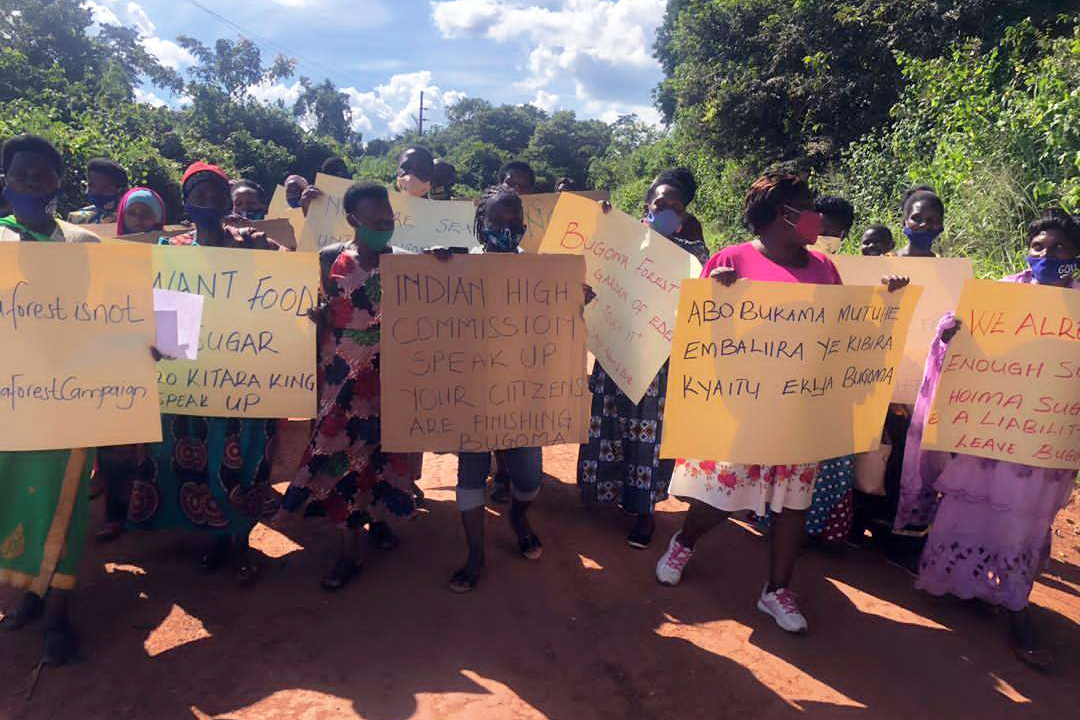 aforest is not
aforestCampaign
WANT FOOD
SUGAR
KITARA KING
SPEAK UP
INDIAN HIGH
COMMISSION
SPEAK UP
YOUR CITIZENS
ARE FINISHING
BUGOMA
BUGOMA FOREST
GARDEN OF EDEN
ABOBUKAMA MUTUHE
EMBALIIRA YE KIBIRA
KYAITU EKYA BUGOMA
WE ALRE
ENOUGH SU
HOIMA SUG
A LIABILIT
LEAVE BUG